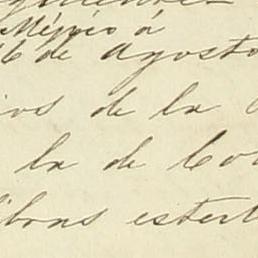 Méjico á
16 de Agosto
ios de la
la de Co
libras esterl